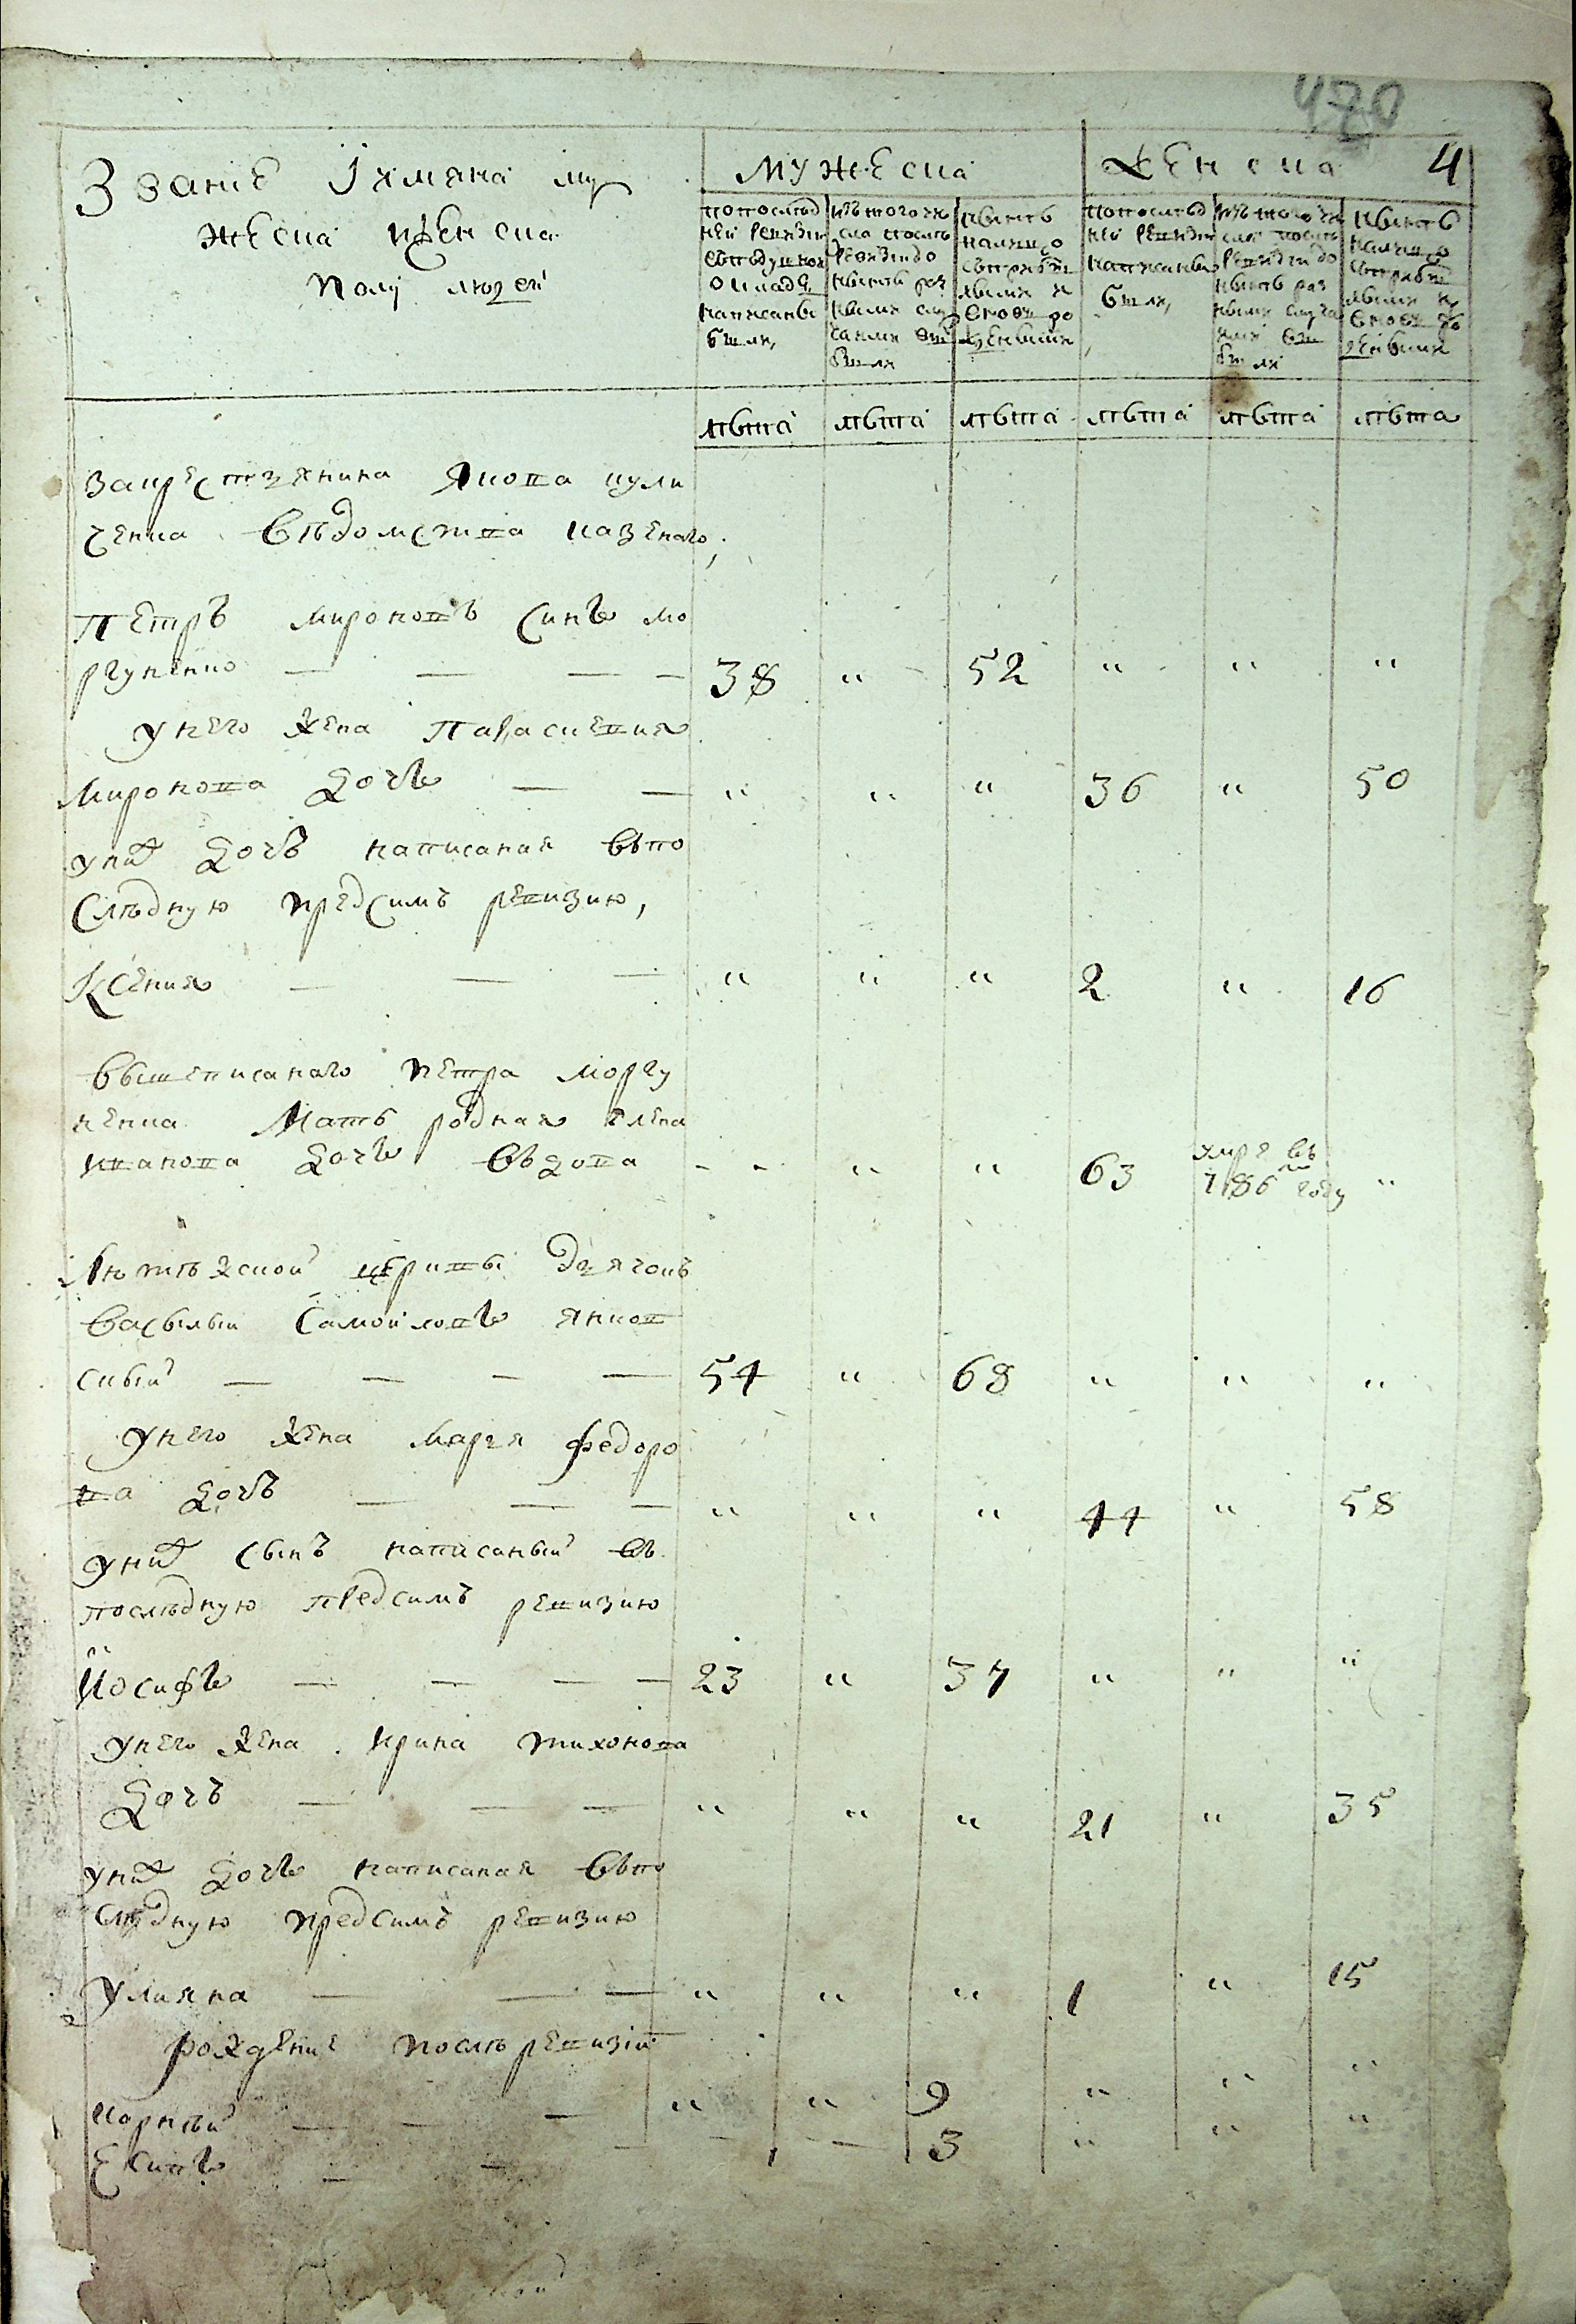 470
4
Званіе Ї имяна му
жеска иженска
полу людей
мужеска
женска
попослѣд
ней ревизіи
въподушном
окладѣ
написаны
были,
изътого чи
сла послѣ
ревизіи до
нынѣ раз
ными слу
чаями вы
были
нынѣ
налицо
съприбы
лыми и
вновь ро
жденными
попослѣд
ней ревизіи
написаны
были,
изътого чи
сла послѣ
ревизіи до
нынѣ раз
ными случа
ями вы
были
нынѣ
налицо
съприбы
лыми и
вновь ро
жденными
лѣта лѣта лѣта лѣта лѣта лѣта
Закрестянина Якова кули
ченка вѣдомства казенаго,
Петръ мироновъ синъ мо
ргуненко — — — — 38 " 52 " " "
унего жена Параскевия
миронова дочь — — " " " 36 " 50
уних дочъ написаная въпо
слѣдную предсимъ ревизию,
Ксения — — — " " " 2 " 16
вышеписанаго петра моргу
ненка Мать родная елена
иванова дочь въдова - - " " 63 умре въ 1786м году "
Лютѣжской церквы дячокъ
васылый Самойловъ янков
скый — — — — 54 " 68 " " "
унего жена марея федоро
ва дочъ — — — " " " 44 " 58
уних сынъ написаный въ
послѣдную предсимъ ревизию
Иосифъ — — — — 23 " 37 " " "
унего жена ирина тихонова
дочъ — — — " " " 21 " 35
уних дочь написаная въпо
слѣдную предсимъ ревизию
Улияна — — — " " " 1 " 15
рожденые послѣ ревизіи
корнѣй — — — " " 9 " " "
Есипъ — — — — 3 " " "